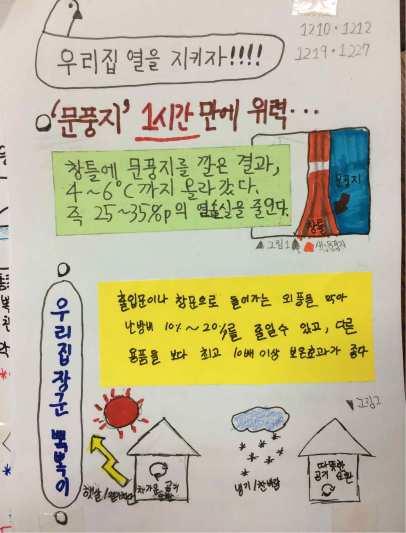 우리집 열을 지키자!!!!
1210·1212
1219·1227
'문풍지' 1시간 만에 위력···
창틀에 문풍지를 깔은 결과,
4~6℃까지 올라갔다.
즉 25~35%p의 열손실을 줄인다.
문풍지
창틀
그림1
출입문이나 창문으로 들어가는 외풍을 막아
난방비 10%~20%를 줄일수 있고, 다른
용품을 보다 최고 10배 이상 보온효과가 좋다
우리집장군 뽁뽁이
그림2
햇살/열기차단
차가운 공기 순환
냉기/찬바람
따뜻한
공기 순환